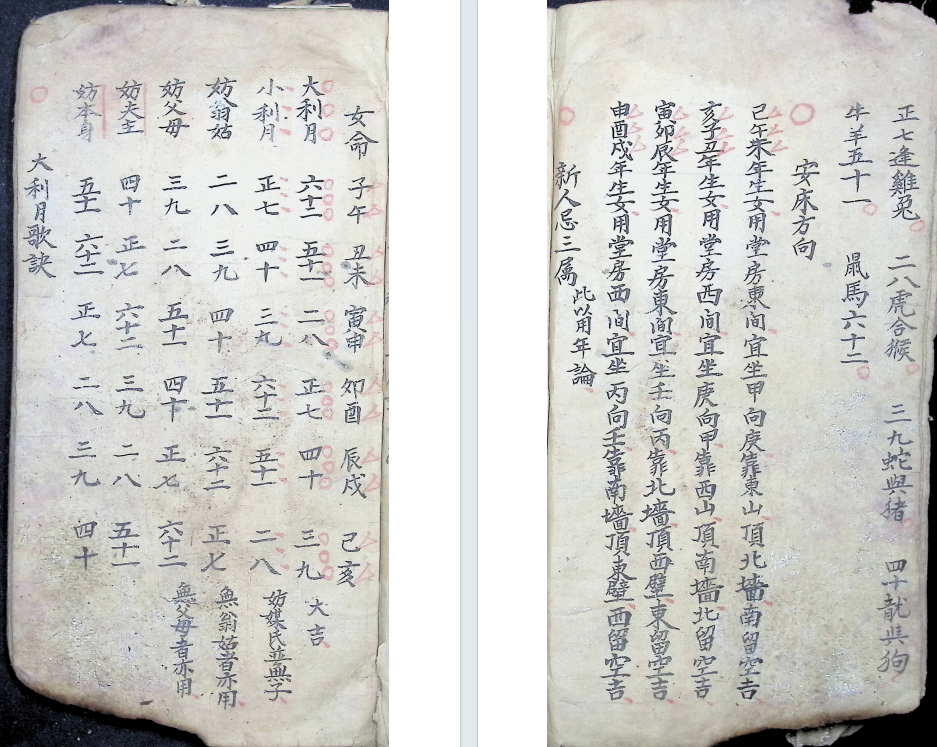 女命 子午 丑未 寅申 卯酉 辰戌 己亥
大利月 六十二 五十一 二八 正七 四十 三九 大吉
小利月 正七 四十 三九 六十二 五十一 二八 妨媒氏並無子
妨翁姑 二八 三九 四十 五十一 六十二 正七 無翁姑者亦用
妨父母 三九 二八 五十一 四十 正七 六十二 無父母者亦用
妨夫主 四十 正七 六十二 三九 二八 五十一
妨本身 五十一 六十二 正七 二八 三九 四十
大利月歌訣
正七逢雞兔 二八虎合猴 三九蛇與猪 四十龍與狗
牛羊五十一 鼠馬六十二
安床方向
己午未年生女用堂房東间宜坐甲向庚靠東山頂北墻南留空吉
亥子丑年生女用堂房西间宜坐庚向甲靠西山頂南墻北留空吉
寅卯辰年生女用堂房東间宜坐壬向丙靠北墻頂西壁東留空吉
申酉戌年生女用堂房西间宜坐丙向壬靠南墻頂東壁西留空吉
新人忌三属 此以用年論